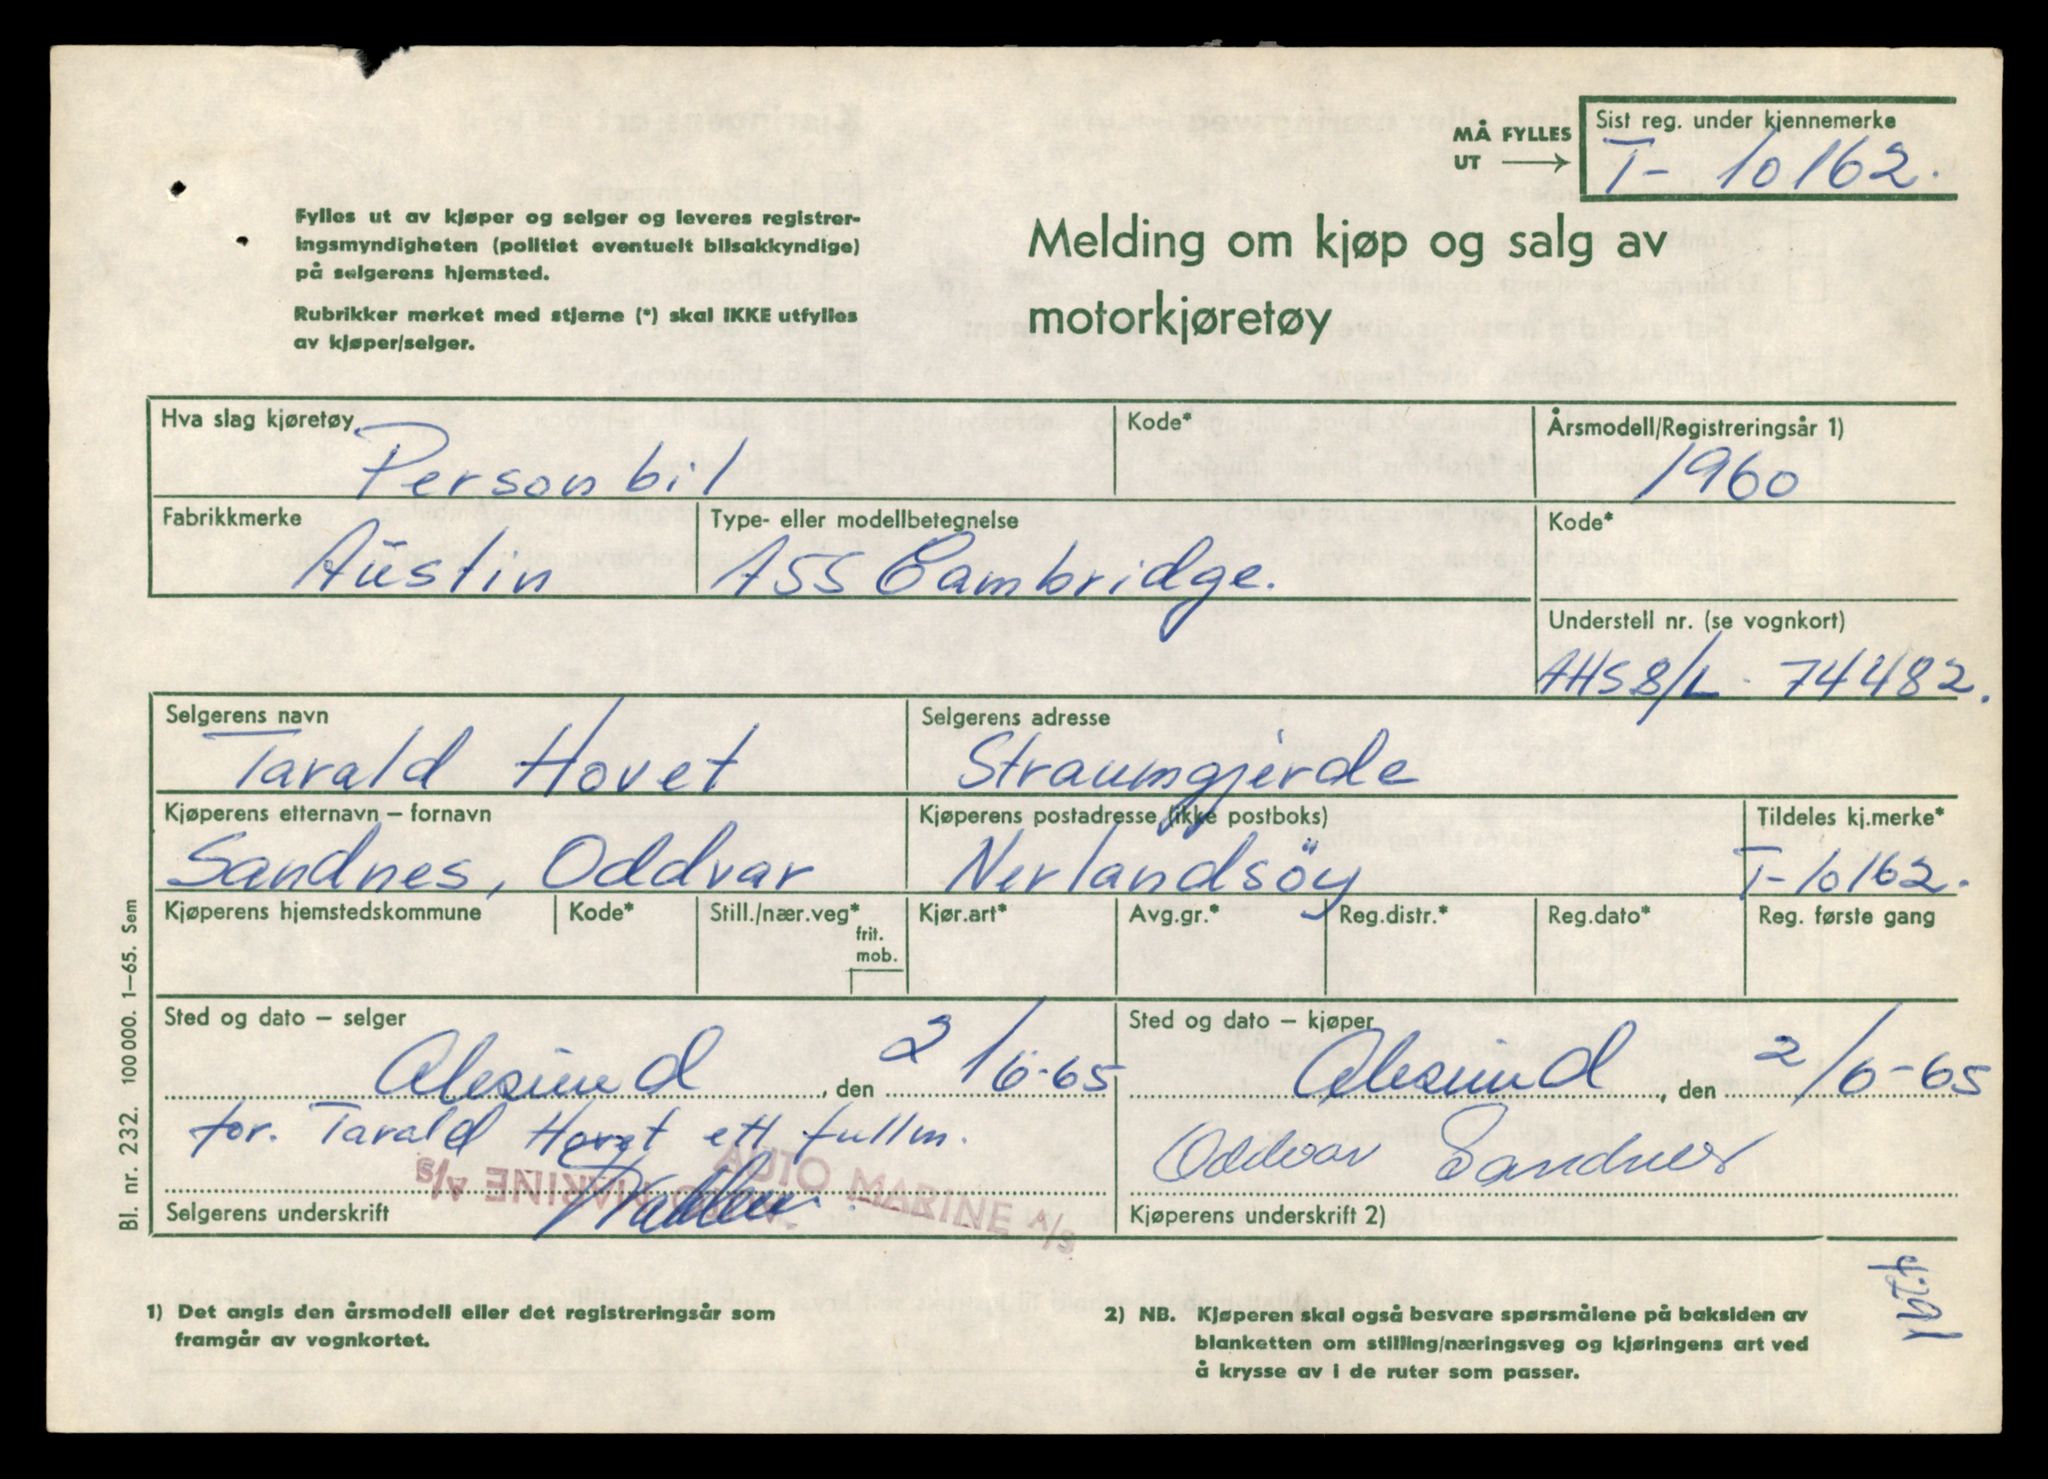 MÅ FYLLES
UT
Sist reg. under kjennemerke
T- 10162.
Fylles ut av kjøper og selger og leveres registrer-
ingsmyndigheten (politiet eventuelt bilsakkyndige)
på selgerens hjemsted.
Rubrikker merket med stjerne (*) skal IKKE utfylles
av kjøper/selger.
Melding om kjøp og salg av
motorkjøretøy
Hva slag kjøretøy
Personbil
Kode*
Årsmodell/Registreringsår 1)
1960
Fabrikkmerke
Austin
Type- eller modellbetegnelse
A55 Cambridge.
Kode*
Understell nr. (se vognkort)
AHS 8/L - 74482.
Selgerens navn
Tarald Hovet
Selgerens adresse
Straumgjerde
Kjøperens etternavn – fornavn
Sandnes, Oddvar
Kjøperens postadresse (ikke postboks)
Nerlandsöy
Tildeles kj.merke*
T-10162.
Kjøperens hjemstedskommune
Kode*
Still./nær.veg*
frit.
mob.
Kjør.art*
Avg.gr.*
Reg.distr.*
Reg.dato*
Reg. første gang
Sted og dato – selger
Alesund, den 2/6-65
for. Tarald Hovet ett fullm.
AUTO MARINE A/S
AUTO MARINE A/S
Selgerens underskrift
Sted og dato – kjøper
Alesund, den 2/6-65
Oddvar Sandnes
Kjøperens underskrift 2)
Bl. nr. 232. 100 000. 1–65. Sem
1) Det angis den årsmodell eller det registreringsår som
framgår av vognkortet.
2) NB. Kjøperen skal også besvare spørsmålene på baksiden av
blanketten om stilling/næringsveg og kjøringens art ved
å krysse av i de ruter som passer.